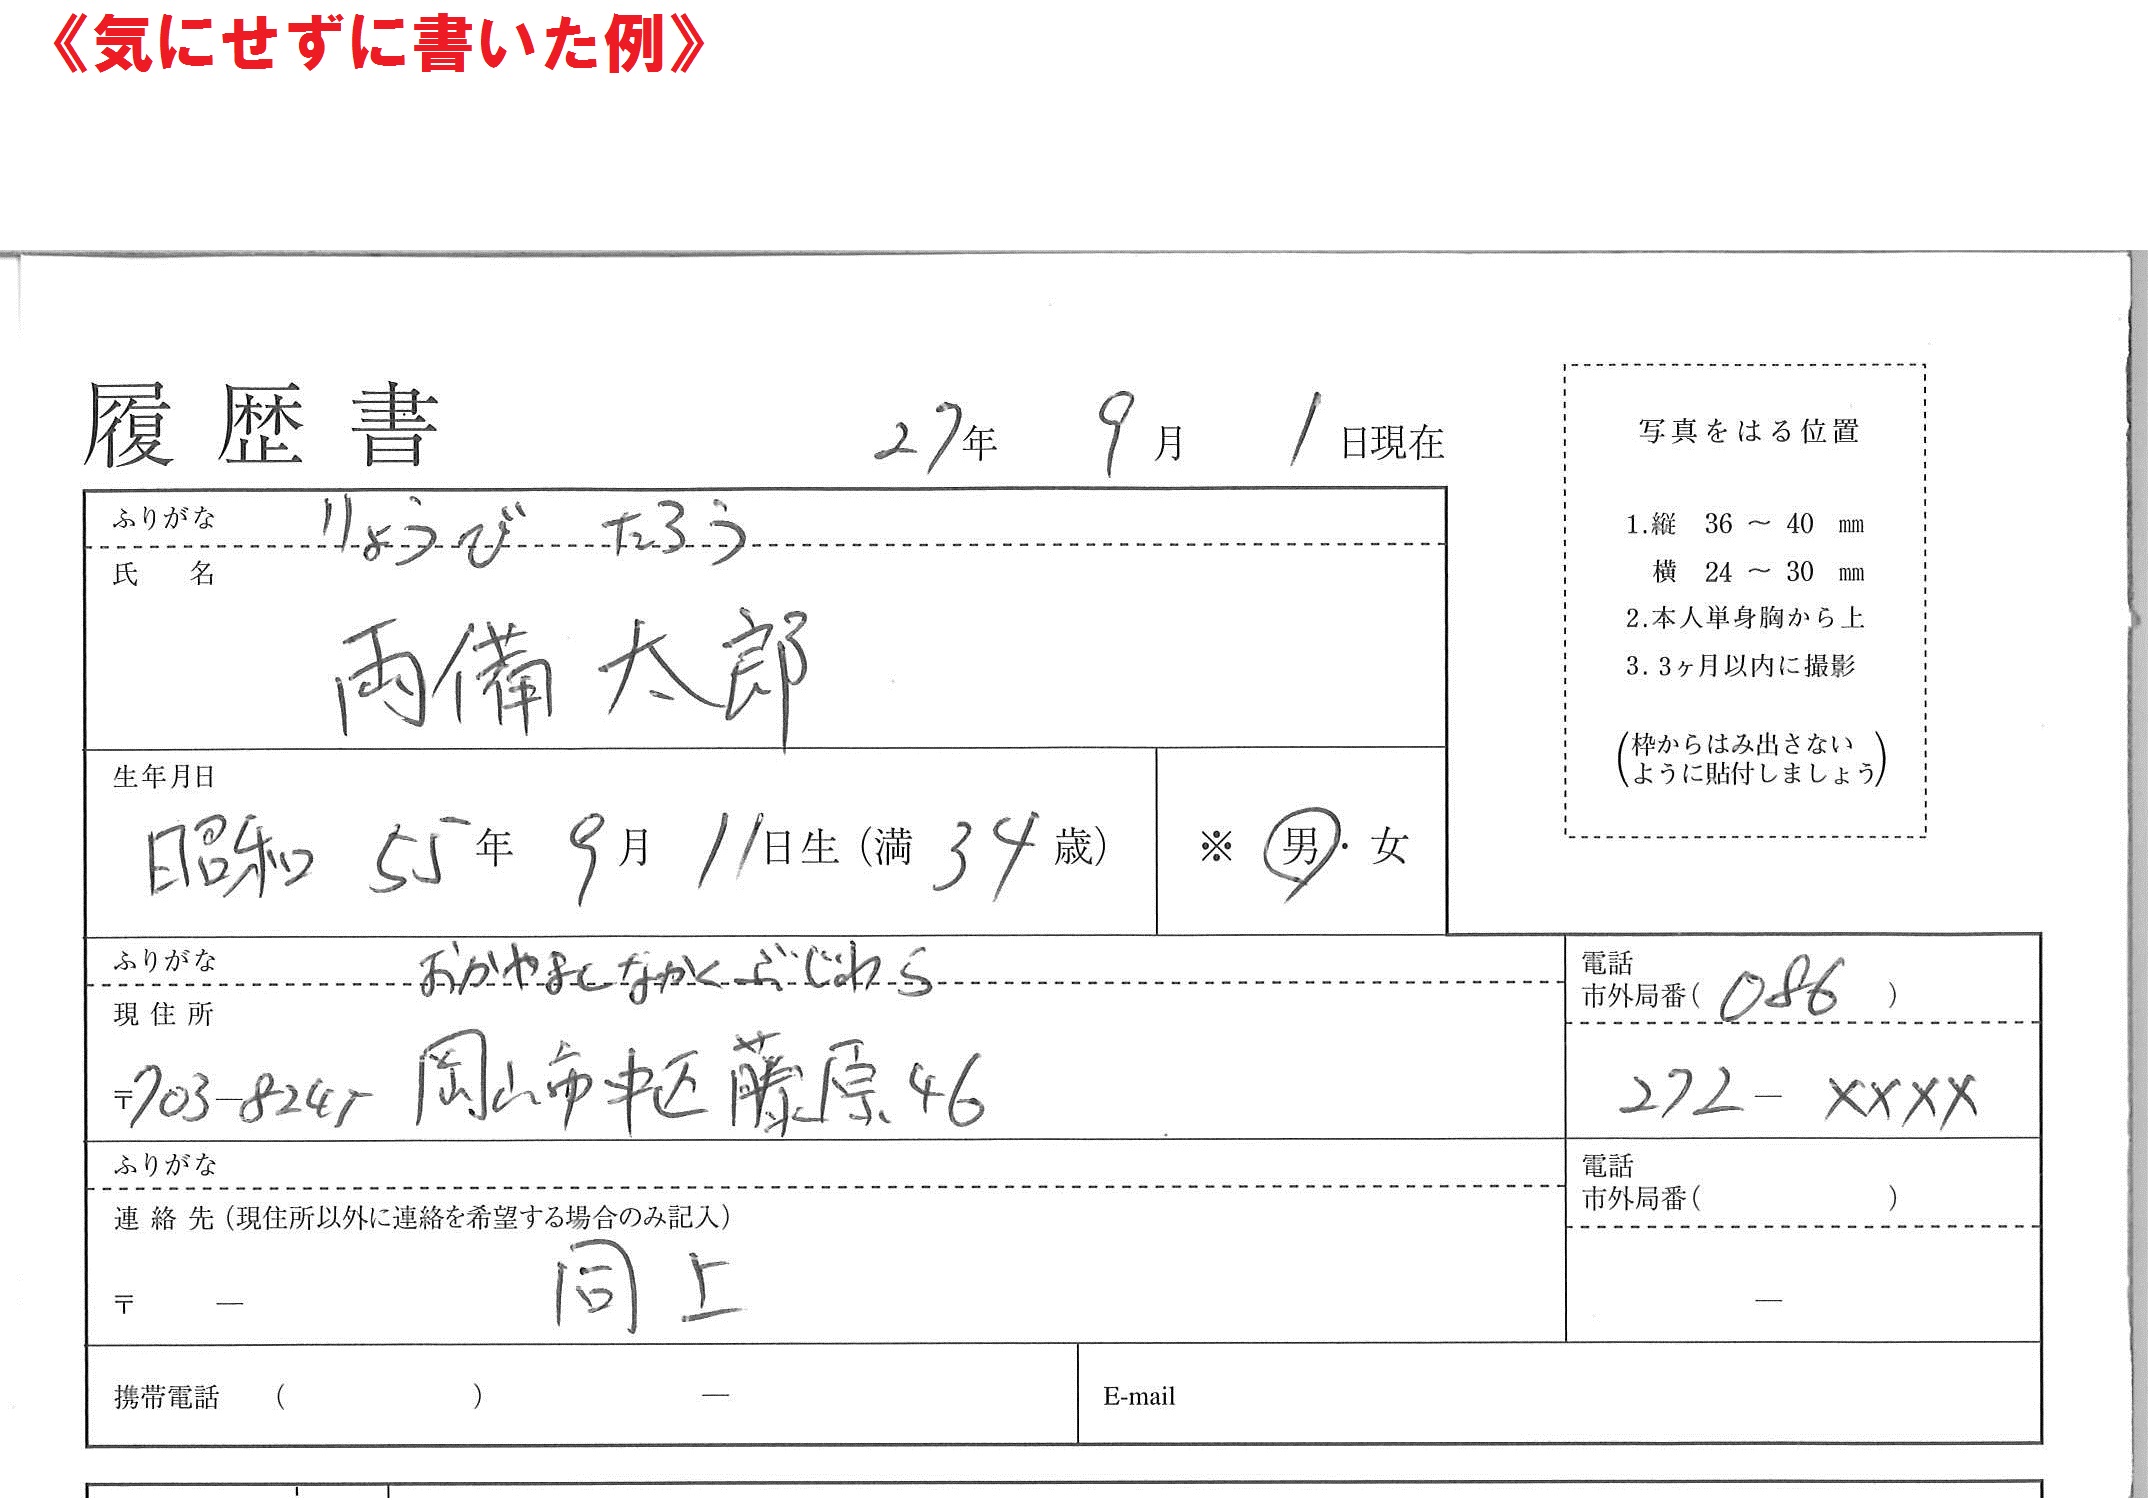 《気にせずに書いた例》
履歴書 27年 9月 1日現在
写真をはる位置
1.縦 36 ～ 40 mm
横 24 ～ 30 mm
2.本人単身胸から上
3.3ヶ月以内に撮影
(枠からはみ出さない
ように貼付しましょう)
ふりがな りょうび たろう
氏 名
両備 太郎
生年月日
昭和 55年 9月 11日生(満 34 歳) ※ 男・女
ふりがな おかやましなかくふじわら
現住所
〒703-8245 岡山市中区藤原46
電話
市外局番( 086 )
272 - ××××
ふりがな
連絡先(現住所以外に連絡を希望する場合のみ記入)
〒 — 同上
電話
市外局番( )
—
携帯電話 ( ) — E-mail